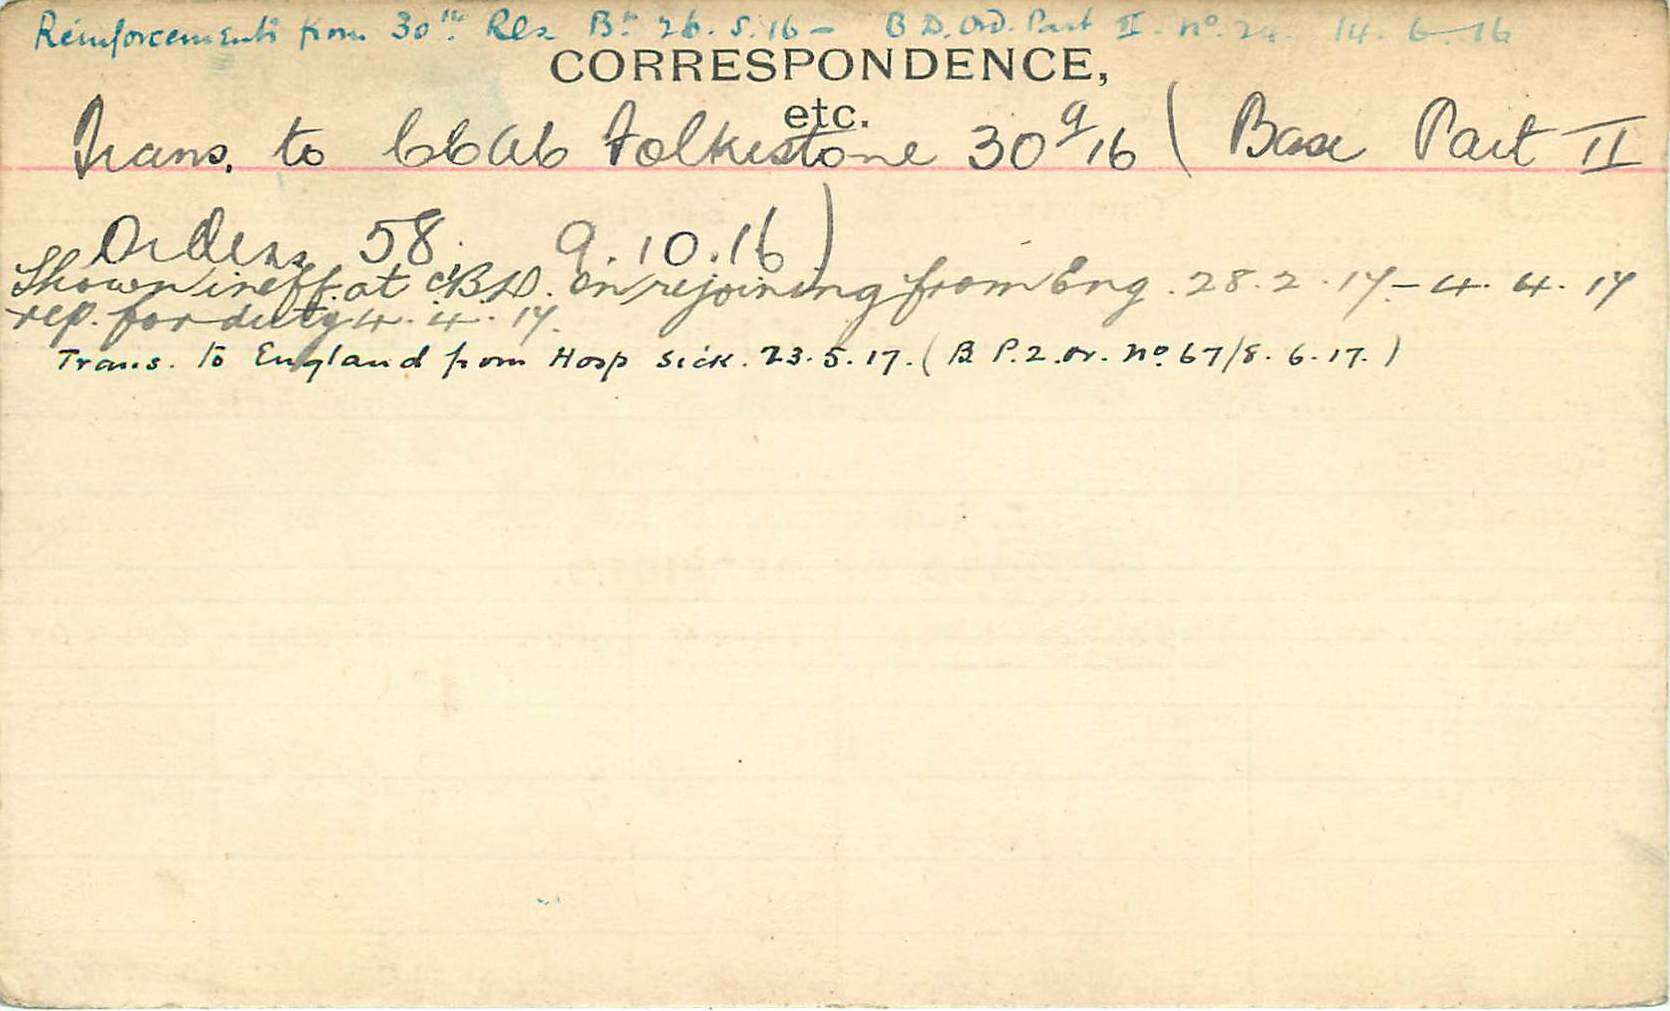 Reinforcements from 30th Res Bn 26.5.16 - B D. Ord. Part II. No. 24. 14.6.16
CORRESPONDENCE,
etc.
Trans. to CCAC Folkestone 30 9/16 ( Base Part II
Orders 58. 9.10.16 )
Shown ineff. at CBD. on rejoining from Eng. 28.2.17 - 4.4.17
rep. for duty 4.4.17.
Trans. to England from Hosp sick. 23.5.17. (B. P.2.or. No. 67/8.6.17.)